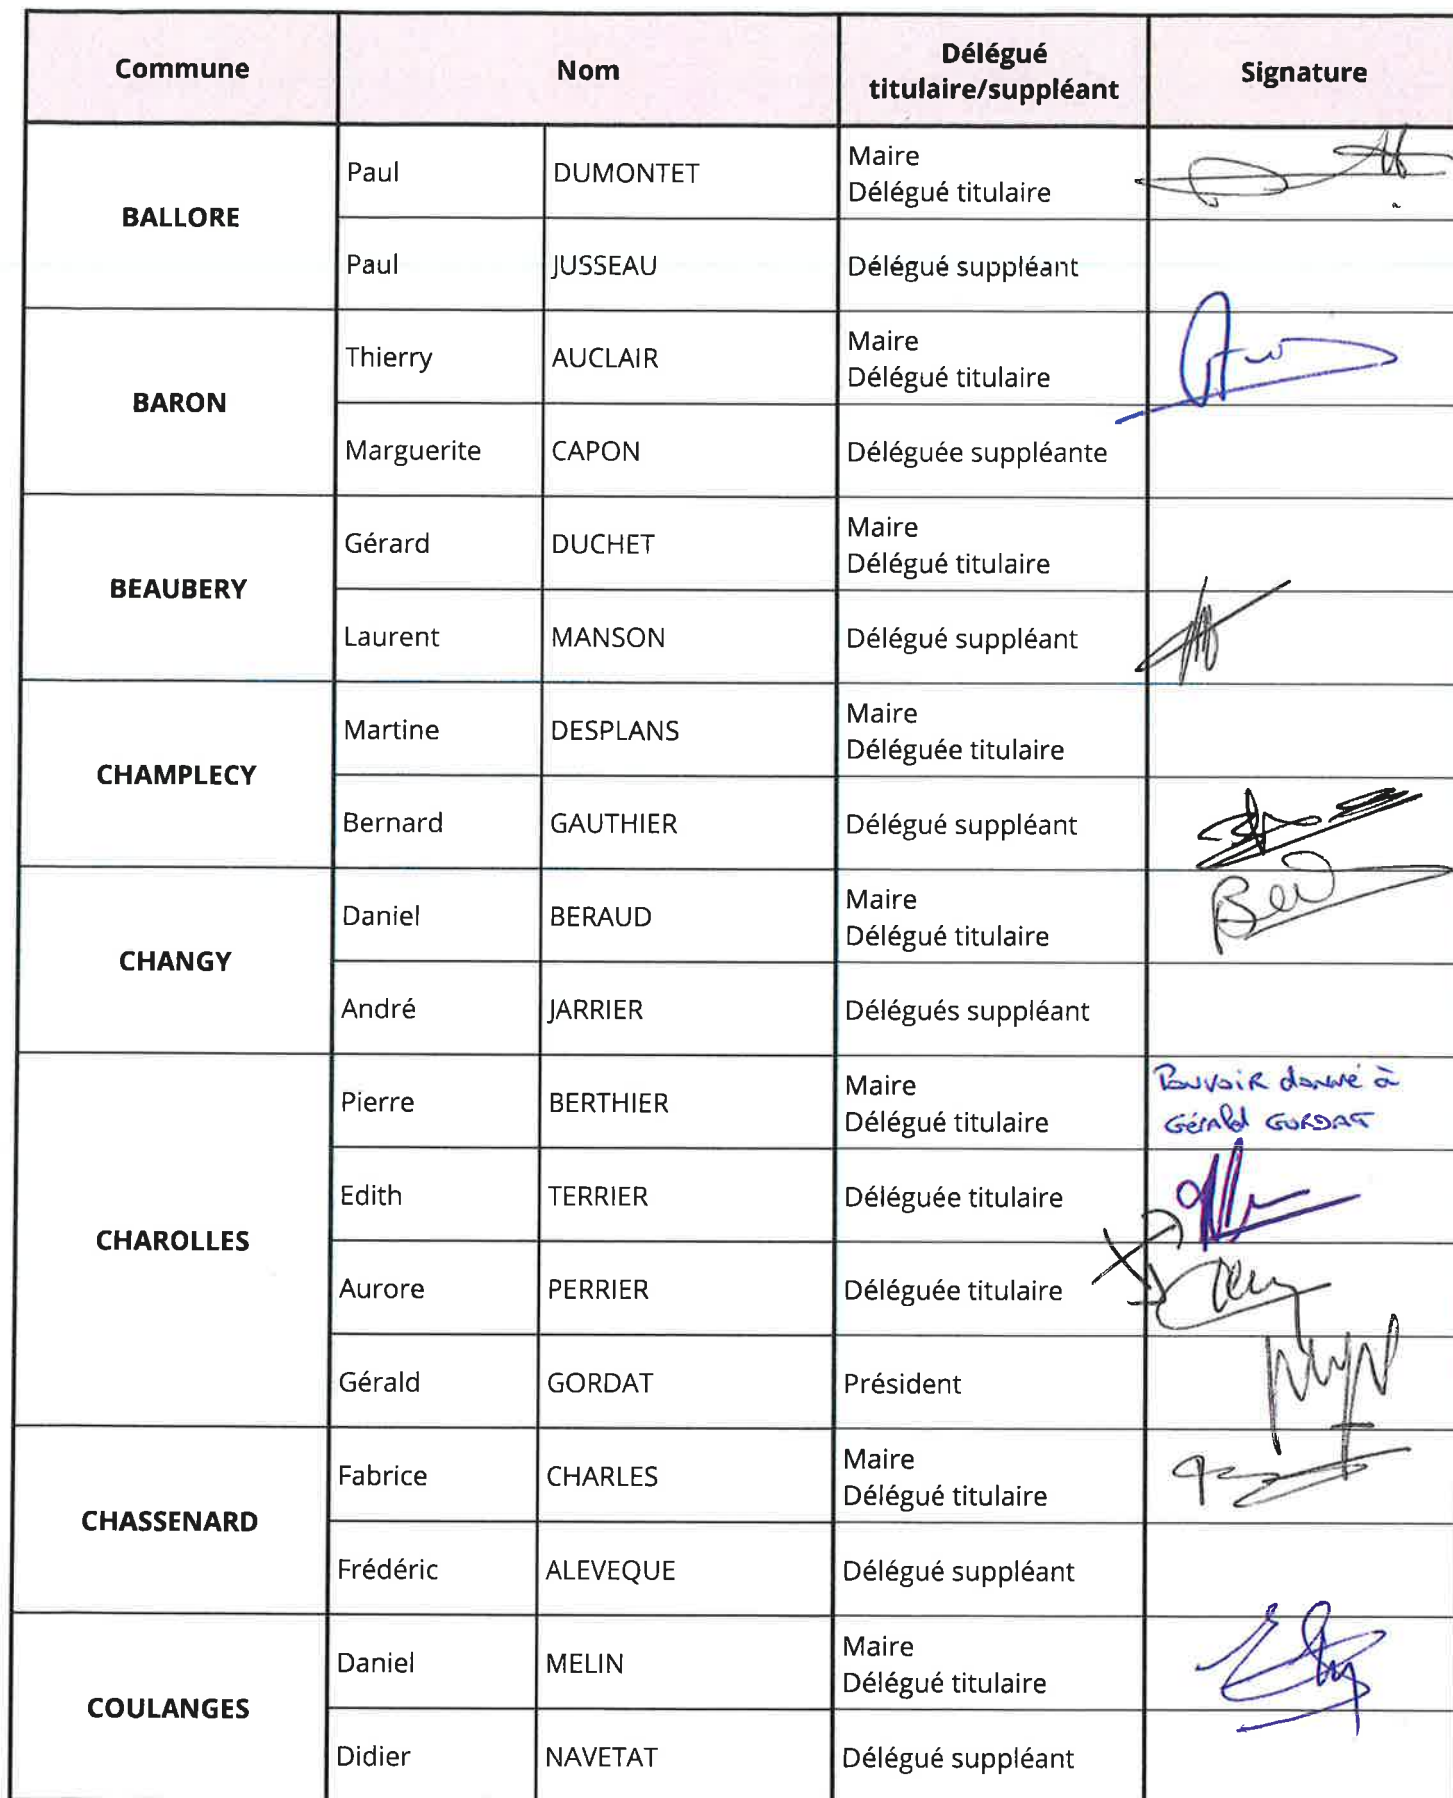 Commune Nom Délégué titulaire/suppléant Signature
BALLORE
Paul DUMONTET Maire
Délégué titulaire
Paul JUSSEAU Délégué suppléant
BARON
Thierry AUCLAIR Maire
Délégué titulaire
Marguerite CAPON Déléguée suppléante
BEAUBERY
Gérard DUCHET Maire
Délégué titulaire
Laurent MANSON Délégué suppléant
CHAMPLECY
Martine DESPLANS Maire
Déléguée titulaire
Bernard GAUTHIER Délégué suppléant
CHANGY
Daniel BERAUD Maire
Délégué titulaire
André JARRIER Délégués suppléant
CHAROLLES
Pierre BERTHIER Maire
Délégué titulaire
Pouvoir donné à
Gérald GORDAT
Edith TERRIER Déléguée titulaire
Aurore PERRIER Déléguée titulaire
Gérald GORDAT Président
CHASSENARD
Fabrice CHARLES Maire
Délégué titulaire
Frédéric ALEVEQUE Délégué suppléant
COULANGES
Daniel MELIN Maire
Délégué titulaire
Didier NAVETAT Délégué suppléant